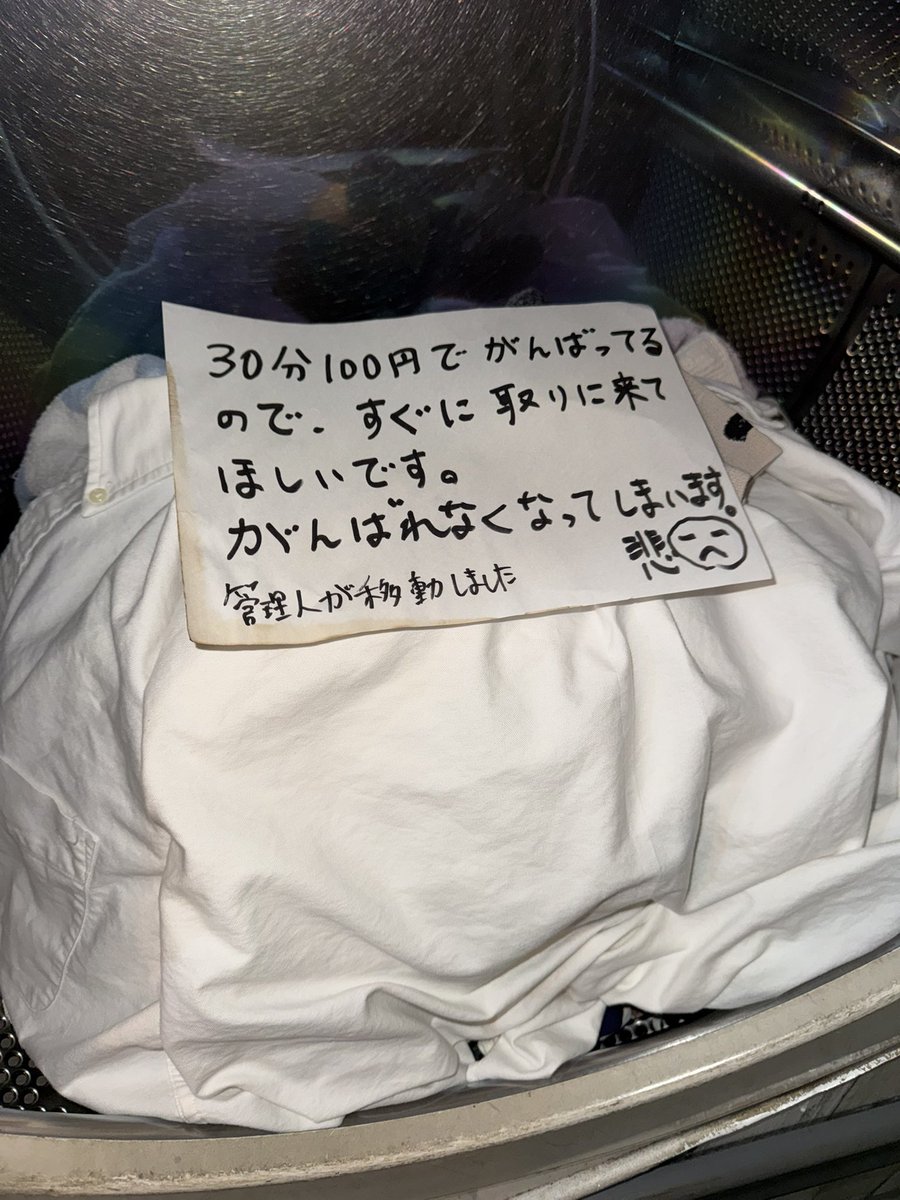 30分100円でがんばってる
ので、すぐに取りに来て
ほしいです。
がんばれなくなってしまいます。
悲
管理人が移動しました